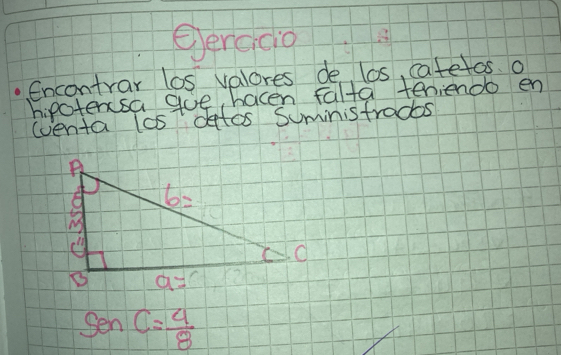 Ejercicio
• Encontrar los valores de los catetos o
hipotenusa que hacen falta teniendo en
cuenta los datos suministrados
A
b=
B
a=
C
Sen C = 4/8